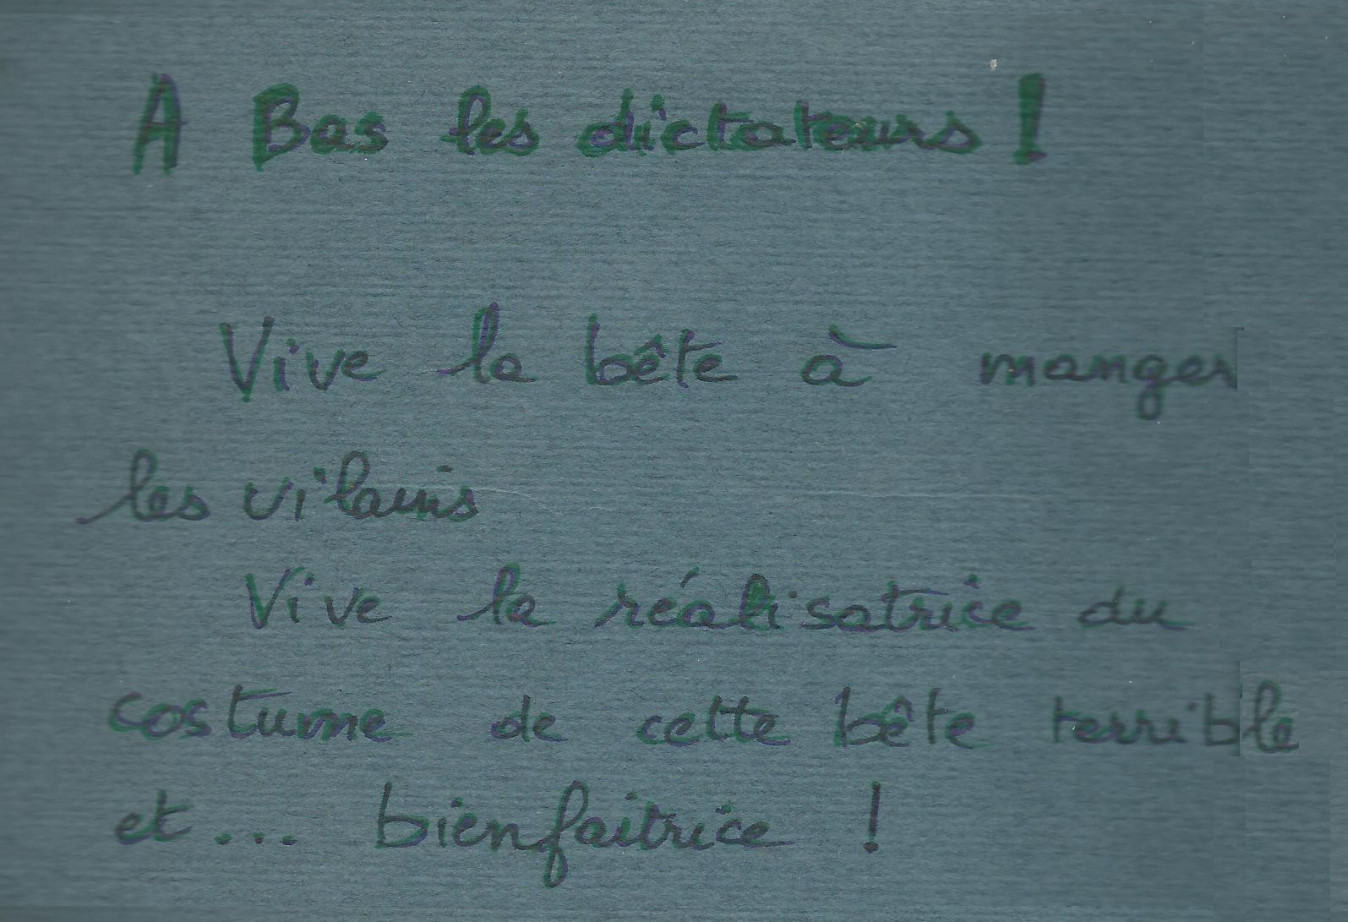 A Bas les dictateurs !
Vive la bête à manger
les vilains
Vive la réalisatrice du
costume de cette bête terrible
et... bienfaitrice !